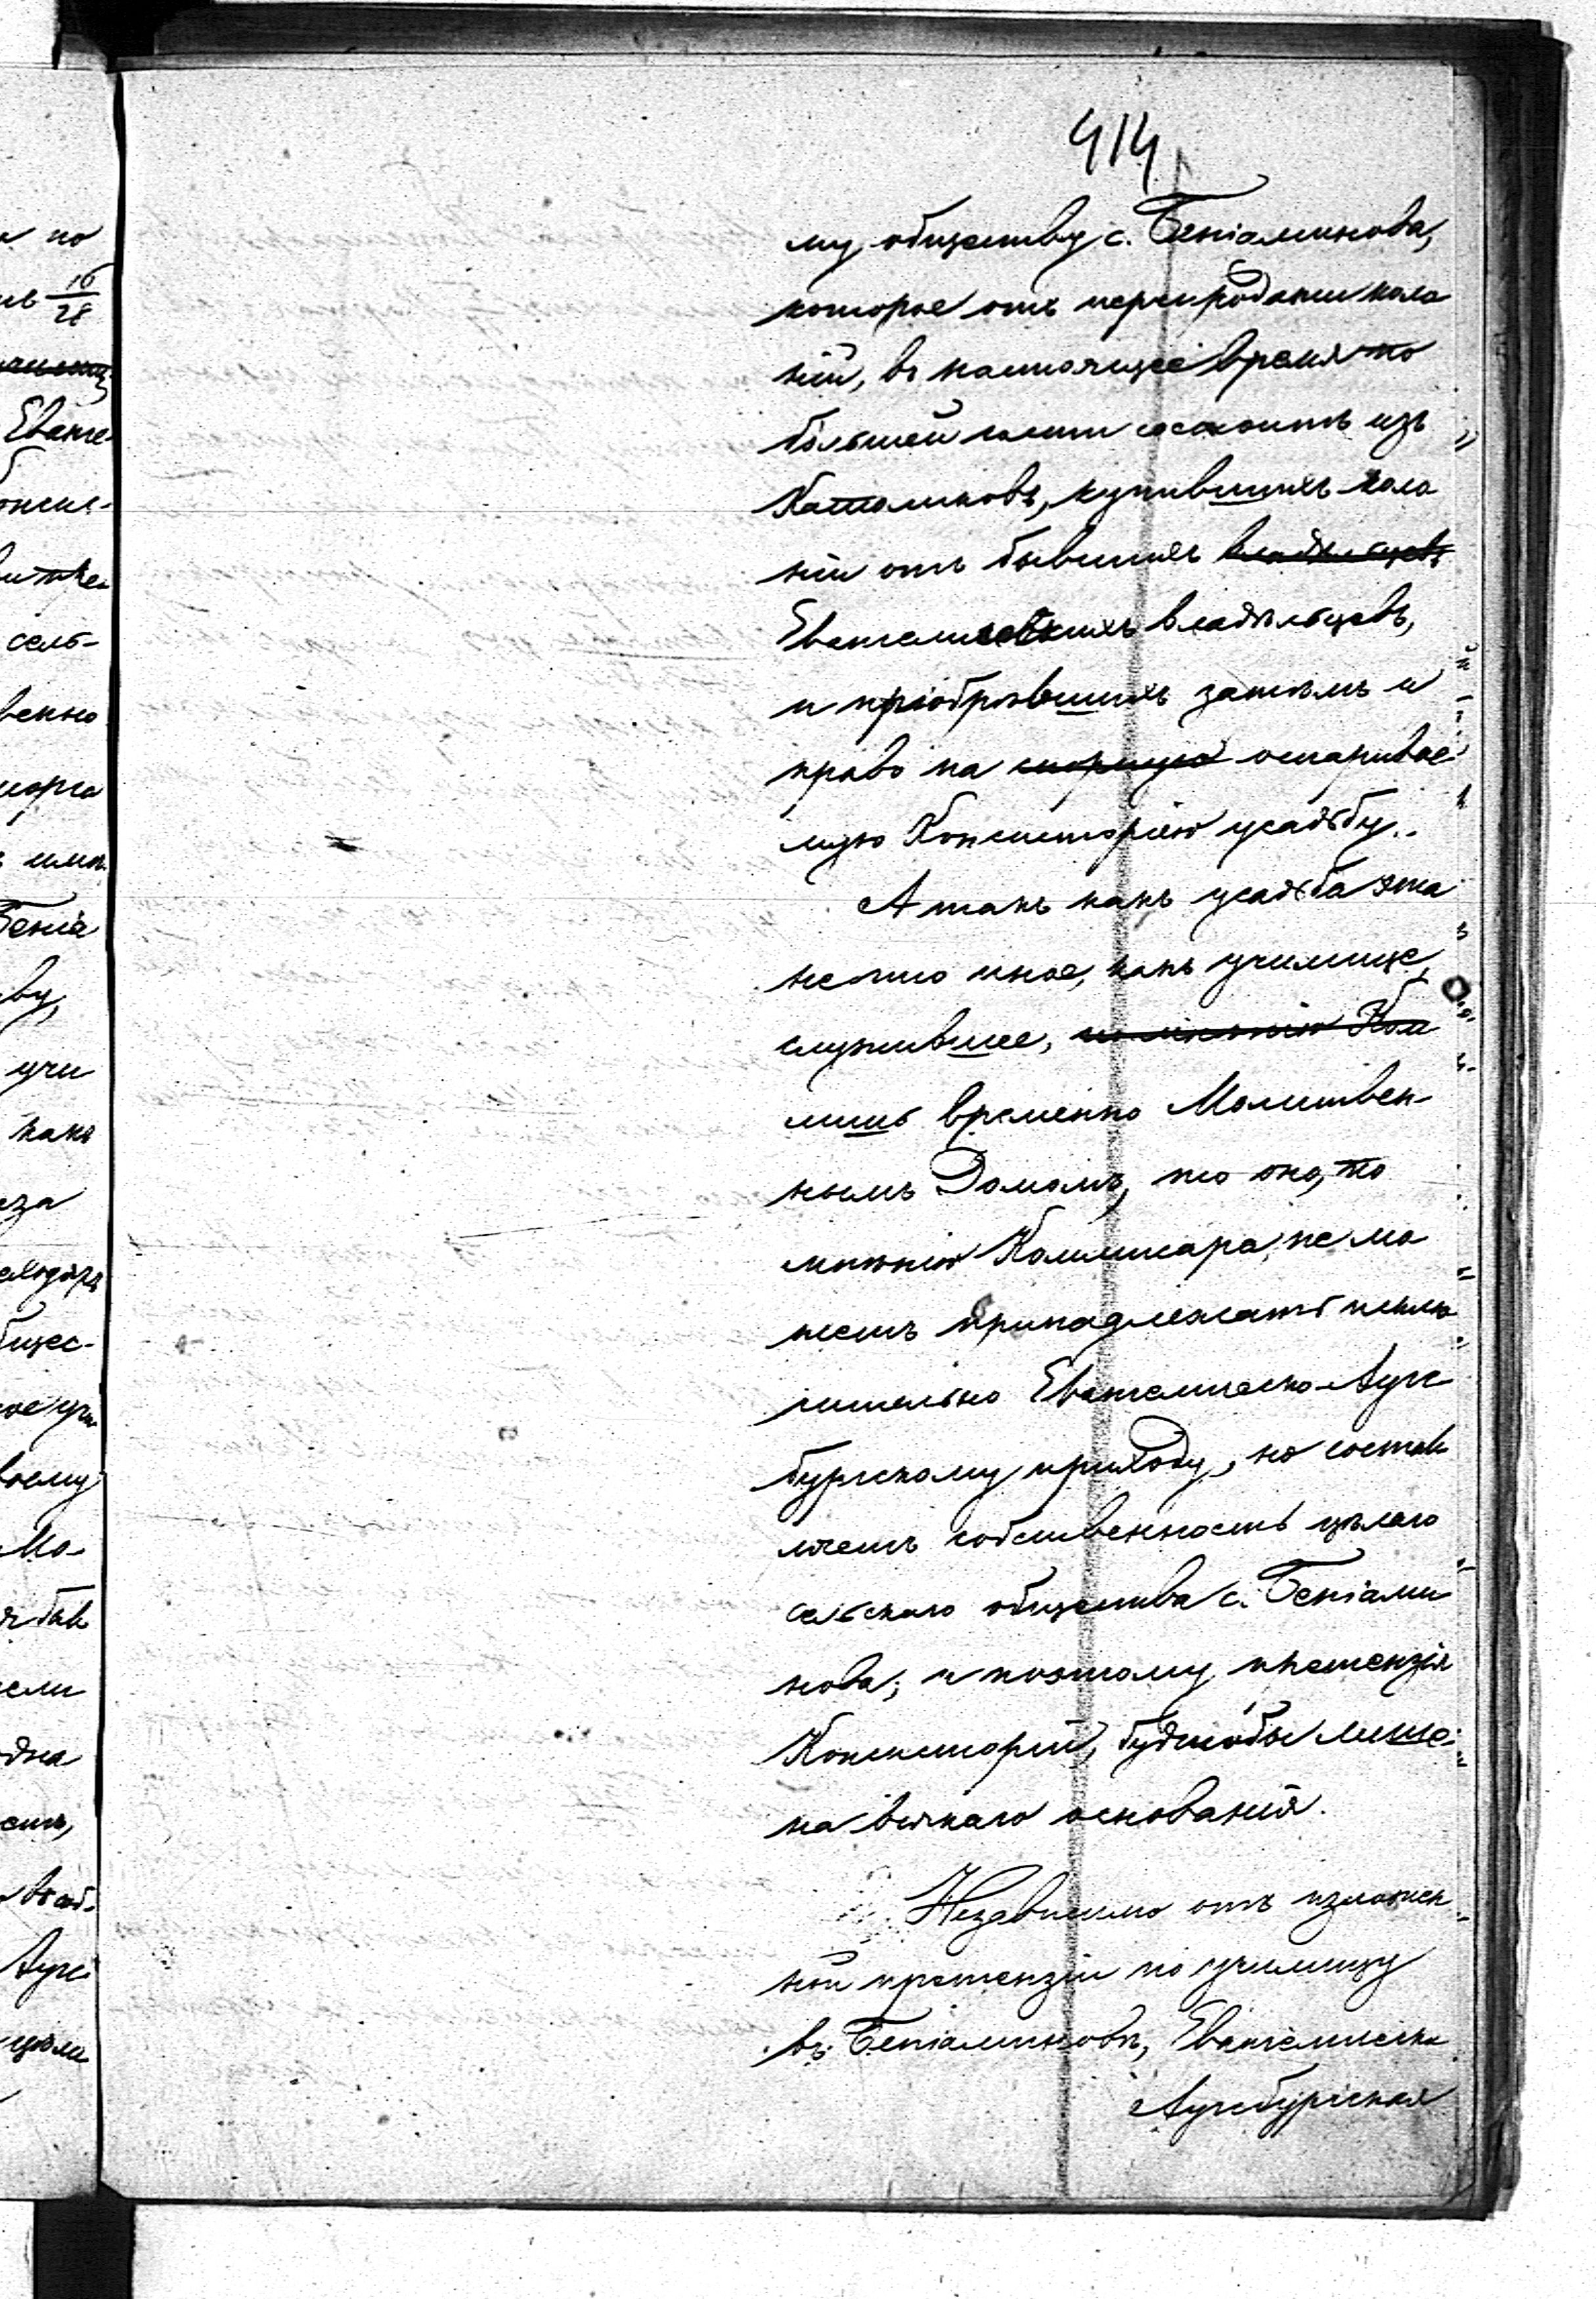 414
му обществу с. Беніаминова,
которое отъ перепродажи коло
ній, въ настоящее время по
большей части состоитъ изъ
Католиковъ, купившихъ коло
ніи отъ бывшихъ владѣльцевъ
Евангелическихъ владѣльцевъ,
и пріобрѣвшихъ затѣмъ и
право на спорную оспаривае
мую Консисторіею усадьбу.
А такъ какъ усадьба эта
не что иное, какъ училище,
служившее, по мнѣнію Ком
лишь временно Молитвен-
нымъ Домомъ, то оно, по
мнѣнію Коммисара, не мо
жетъ принадлежать исклю
чительно Евангелическо-Аугс
бургскому приходу, но состав
ляетъ собственность цѣлаго
сельскаго общества с. Беніами
нова; и поэтому претензія
Консисторіи, будтобы лише-
на всякаго основанія.
Независимо отъ изложен
ной претензіи по училищу
въ Беніаминовѣ, Евангелическо
Аугсбургская
по
16
28
Еванге-
сель-
венно
Бенiа
ву,
учи
какъ
за
Мо-